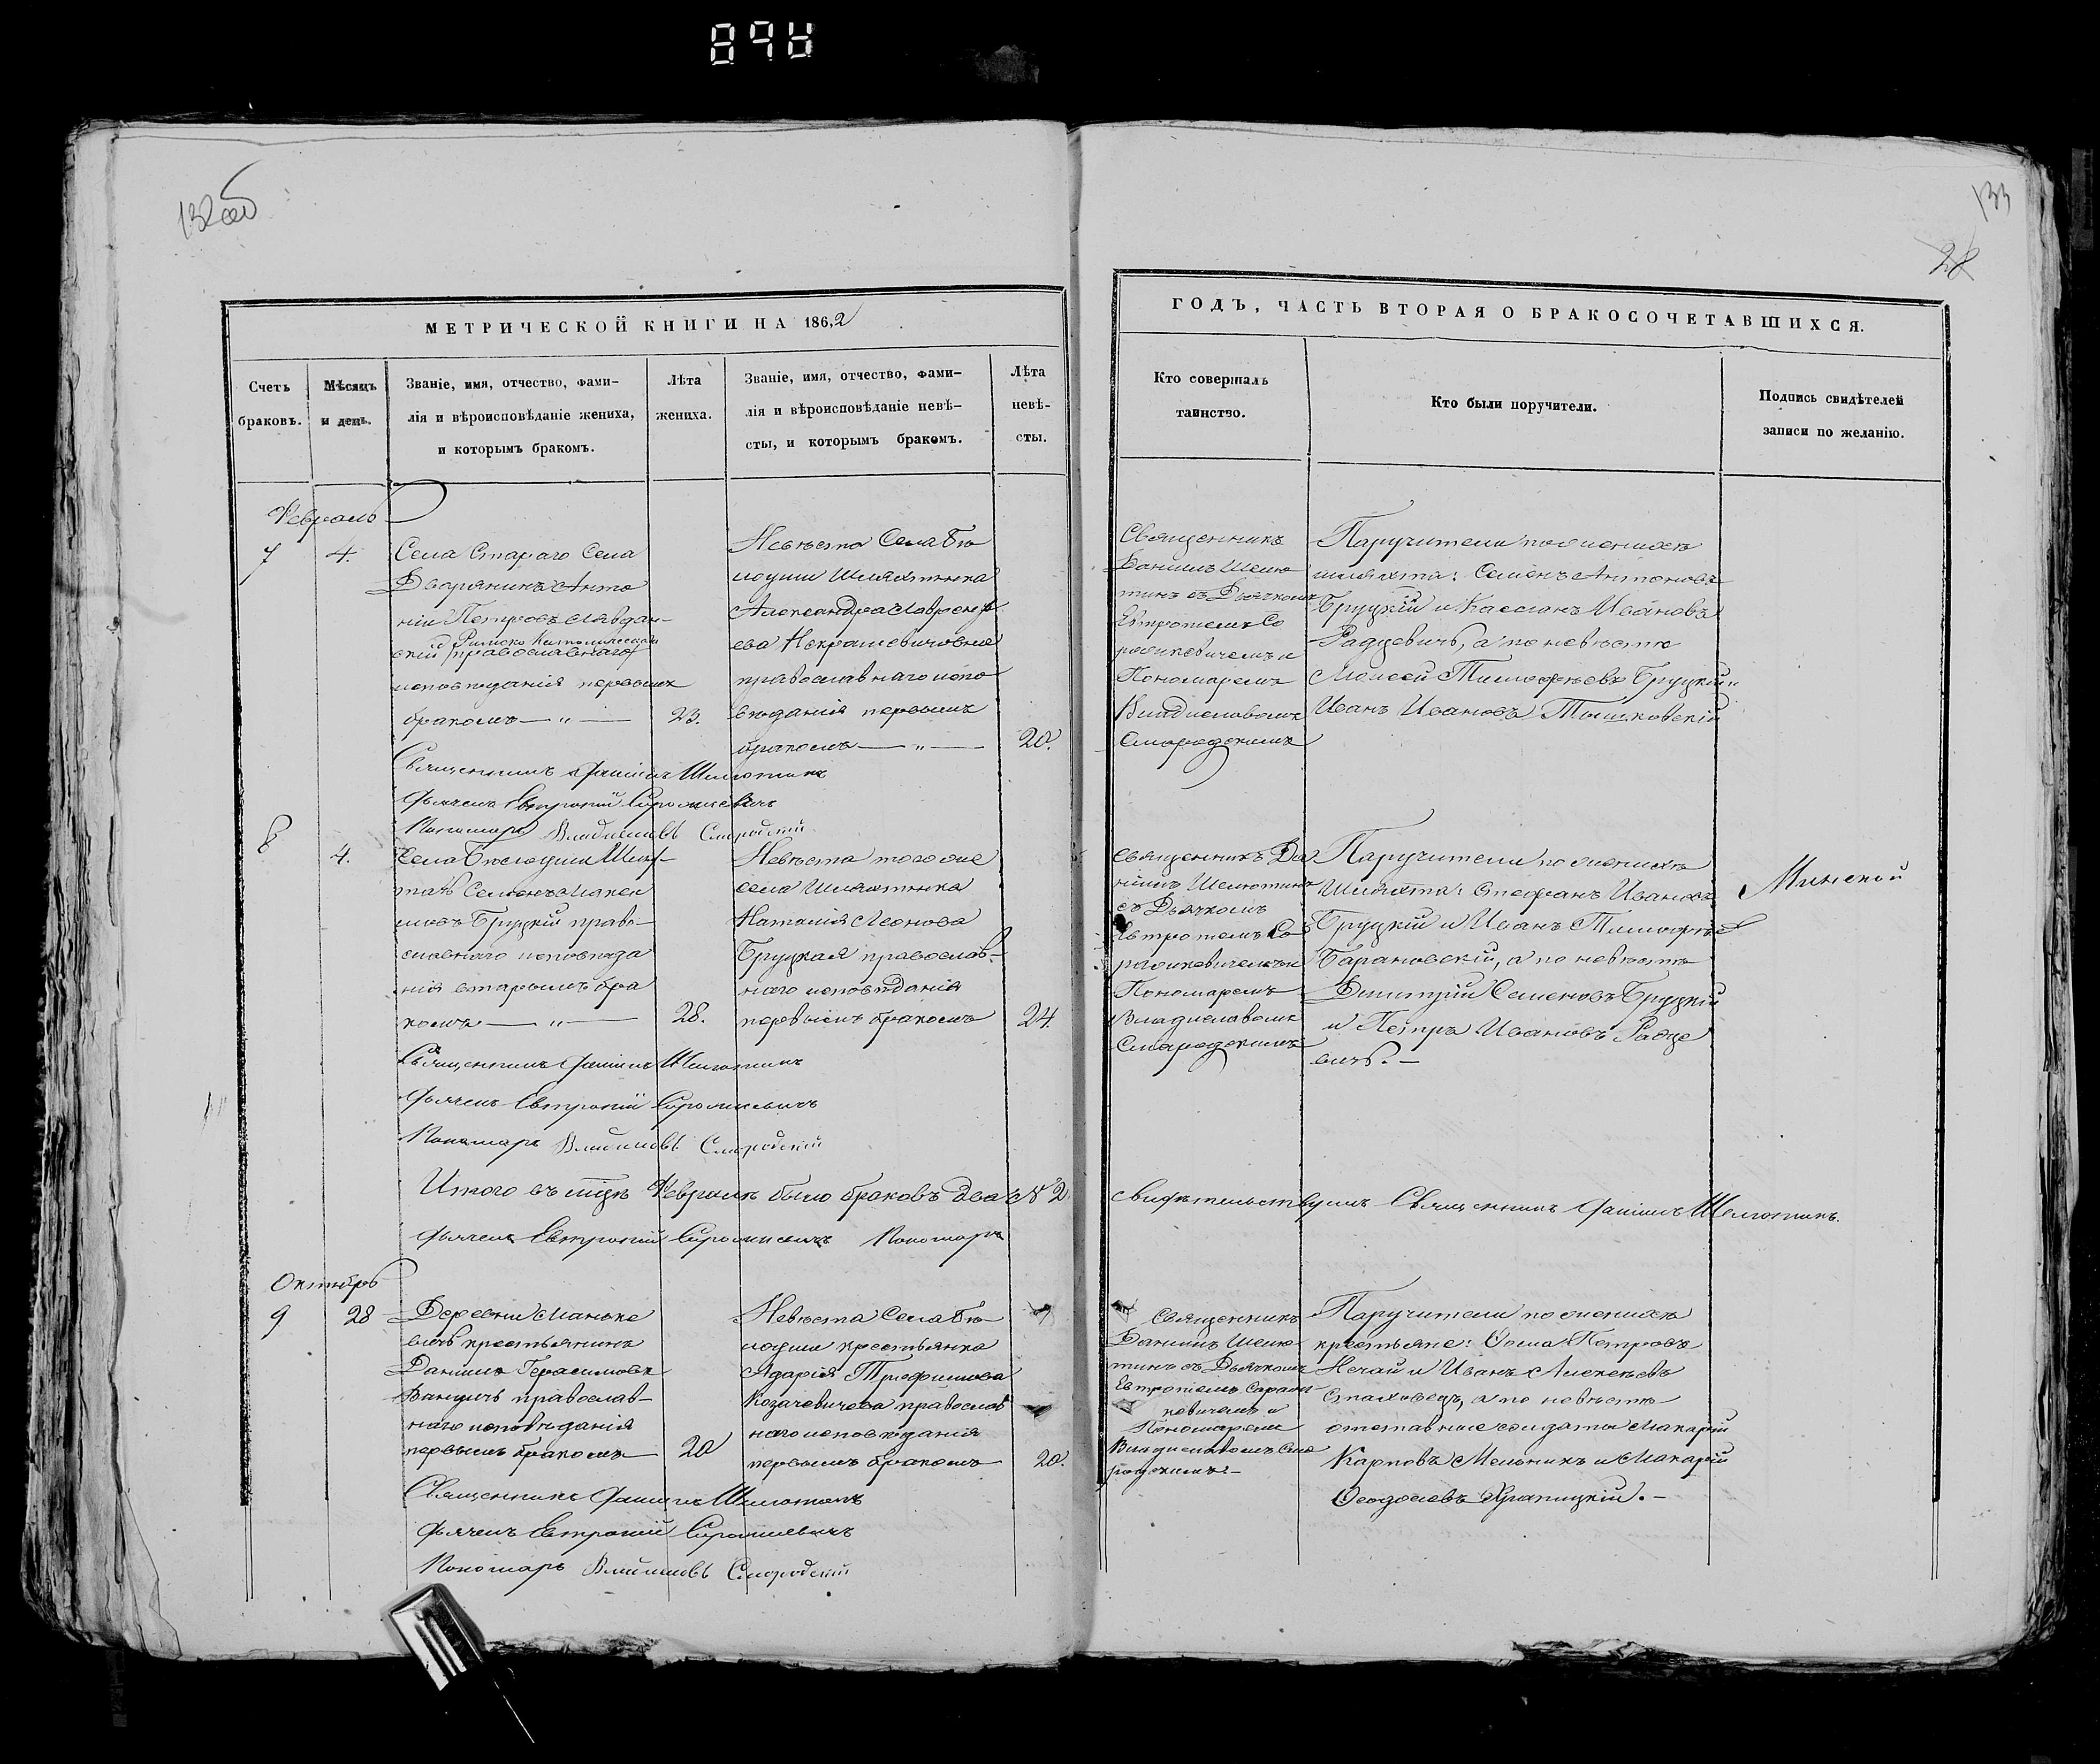 132 об
133
28
МЕТРИЧЕСКОЙ КНИГИ НА 1862
ГОДЪ, ЧАСТЬ ВТОРАЯ О БРАКОСОЧЕТАВШИХСЯ.
Счетъ
браковъ.
Мѣсяцъ
и день.
Званіе, имя, отчество, фами-
лія и вѣроисповѣданіе жениха,
и которымъ бракомъ.
Лѣта
жениха.
Званіе, имя, отчество, фами-
лія и вѣроисповѣданіе невѣ-
сты, и которымъ бракомъ.
Лѣта
невѣ-
сты.
Кто совершалъ
таинство.
Кто были поручители.
Подпись свидѣтелей
записи по желанію.
Февраль
7
4.
Села Стараго Села
Дворянинъ Анто
ній Петровъ
Римско Католическаго
скій православнаго
исповѣданія первымъ
бракомъ — „ —
23.
Невѣста Села Бѣ
лоуши Шляхтянка
Александра Лаврентье
ва Некрашевичовна
православнаго испо
вѣданія первымъ
бракомъ — „ —
20.
Священникъ
Даніилъ Шелю
тинъ съ Дьячкомъ
Евтропіемъ Со
роциевичемъ и
Пономаремъ
Владиславомъ
Смародскимъ
Паручители по женихѣ
шляхта: Семенъ Антоновъ
Бруцкій и Кассіанъ Ивановъ
Радцевичъ, а по невѣстѣ
Моисей Тимофѣевъ Бруцкій и
Иванъ Ивановъ Тышковскій
Священникъ Даніилъ Шелютинъ
Дьячекъ Евтропій
Пономарь Владиславъ Смародскій
8
4.
Села Бѣлоуши Шлях-
тичъ Семенъ Макси
мовъ Бруцкій право-
славнаго исповѣда
нія вторымъ бра
комъ — „ —
28.
Невѣста того же
села Шляхтянка
Наталія Леонова
Бруцкая православ-
наго исповѣданія
первымъ бракомъ
24.
Священникъ Да
ніилъ Шелютинъ
съ Дьячкомъ
Евтропіемъ Со
Пономаремъ
Владиславомъ
Смародскимъ
Паручители по женихѣ
Шляхта: Стефанъ Ивановъ
Бруцкій и Иванъ Тимофѣевъ
Барановскій, а по невѣстѣ
Дмитрій Семеновъ Бруцкій
и Петръ Ивановъ Радце
вичъ. —
Минской
Священникъ Даніилъ Шелютинъ
Дьячекъ Евтропій
Пономарь Владиславъ Смародскій
Итого въ мѣсяцѣ Февралѣ было браковъ два № 2
Свидѣтельствуемъ Священникъ Даніилъ Шелютинъ.
Дьячекъ Евтропій Пономарь
Октябрь
9
28
Деревни Маньке
вичъ крестьянинъ
Даніилъ Герасимовъ
православ-
наго исповѣданія
первымъ бракомъ
20
Невѣста Села Бѣ
лоуши крестьянка
Дарія Трофимова
Козачевичева православ
наго исповѣданія
первымъ бракомъ
20.
Священникъ
Даніилъ Шелю
тинъ съ Дьячкомъ
Евтропіемъ
Пономаремъ
Владиславомъ Сма
родскимъ. —
Паручители по женихѣ
крестьяне: Ѳома Петровъ
Нечай и Иванъ Алексѣевъ
Стаховецъ, а по невѣстѣ
отставные солдаты Макарій
Карповъ Мельникъ и Макарій
Ѳеодосіевъ Храпицкій. —
Священникъ Даніилъ Шелютинъ
Дьячекъ Евтропій
Пономарь Владиславъ Смародскій